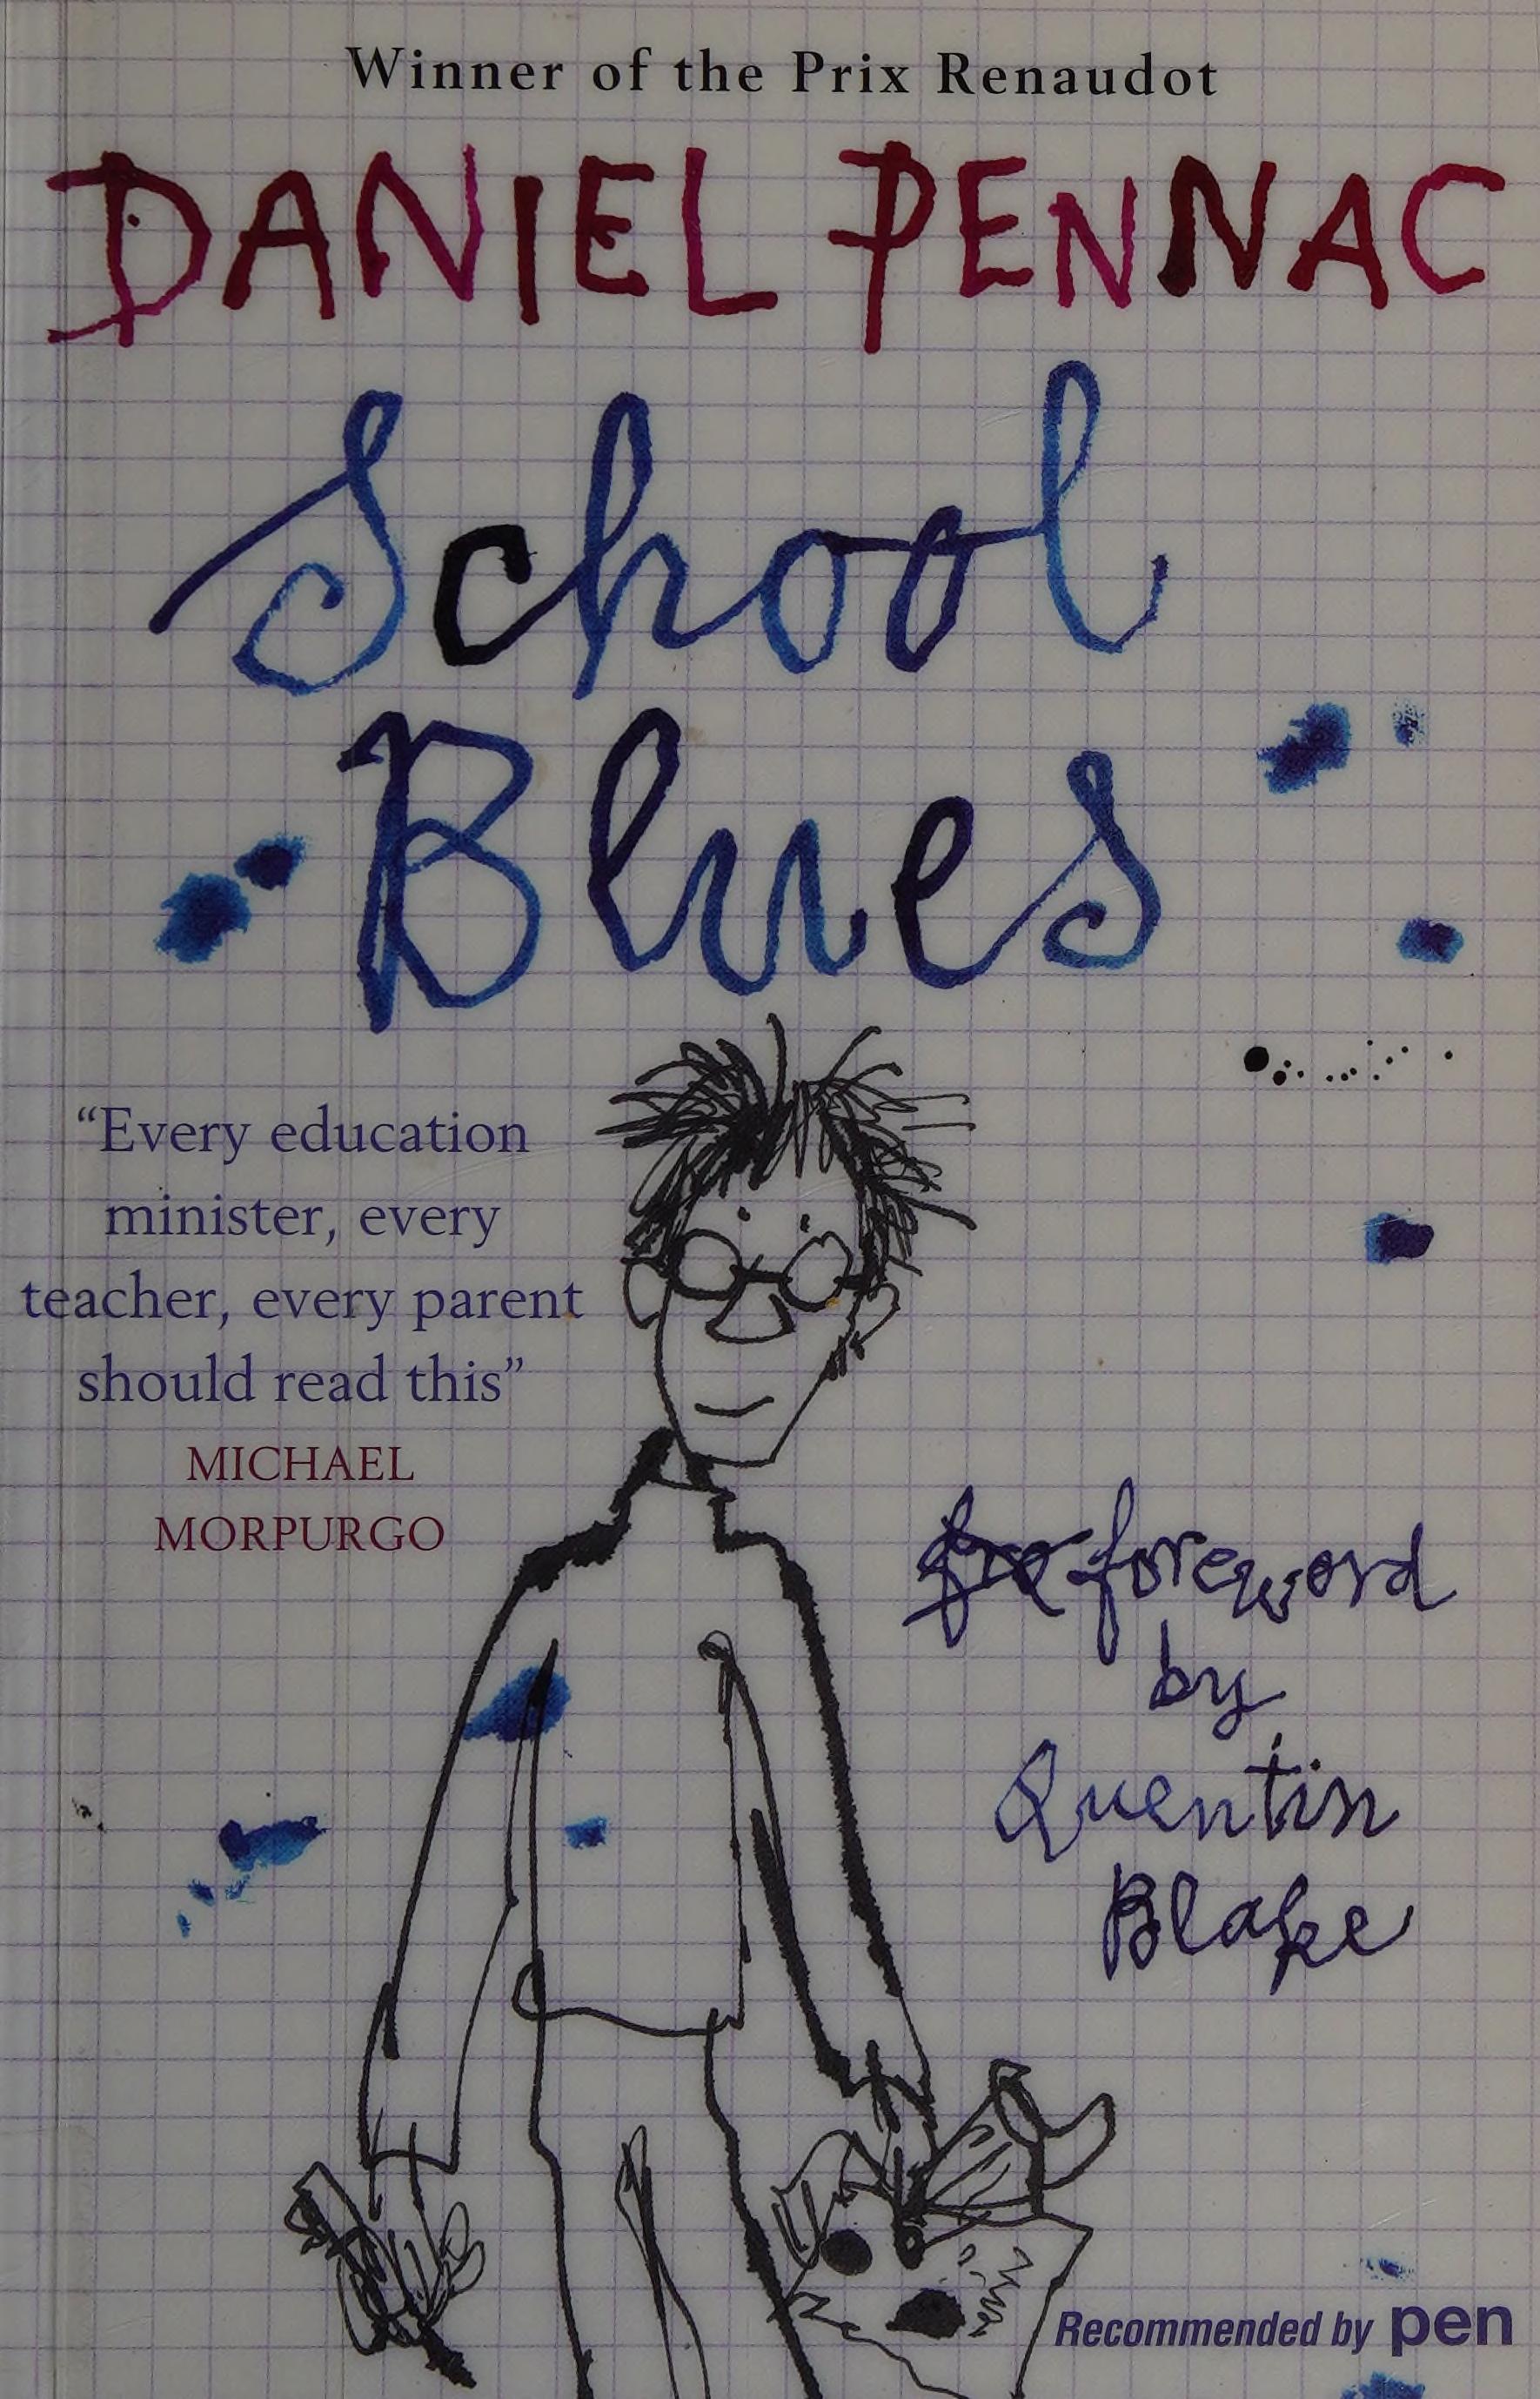 Winner of the Prix Renaudot
DANIEL PENNAC
School
Blues
“Every education
minister, every
teacher, every parent
should read this”
MICHAEL
MORPURGO
foreword
by
Quentin
Blake
Recommended by pen